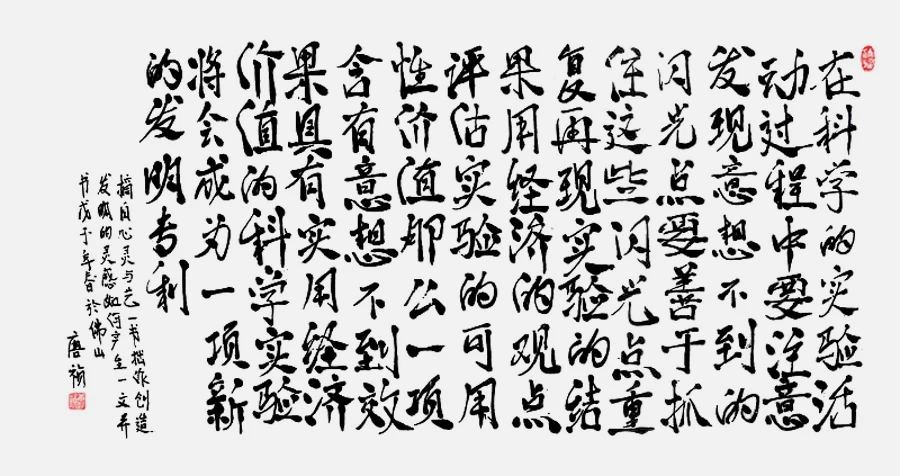 在科学的实验活
动过程中要注意
发现意想不到的
闪光点要善于抓
住这些闪光点重
复再现实验的结
果用经济的观点
评估实验的可用
性价值那么一项
含有意想不到效
果具有实用经济
价值的科学实验
将会成为一项新
的发明专利
摘自心灵与艺一书拙作创造
发明的灵感如何产生一文并
书戊子年春於佛山
唐